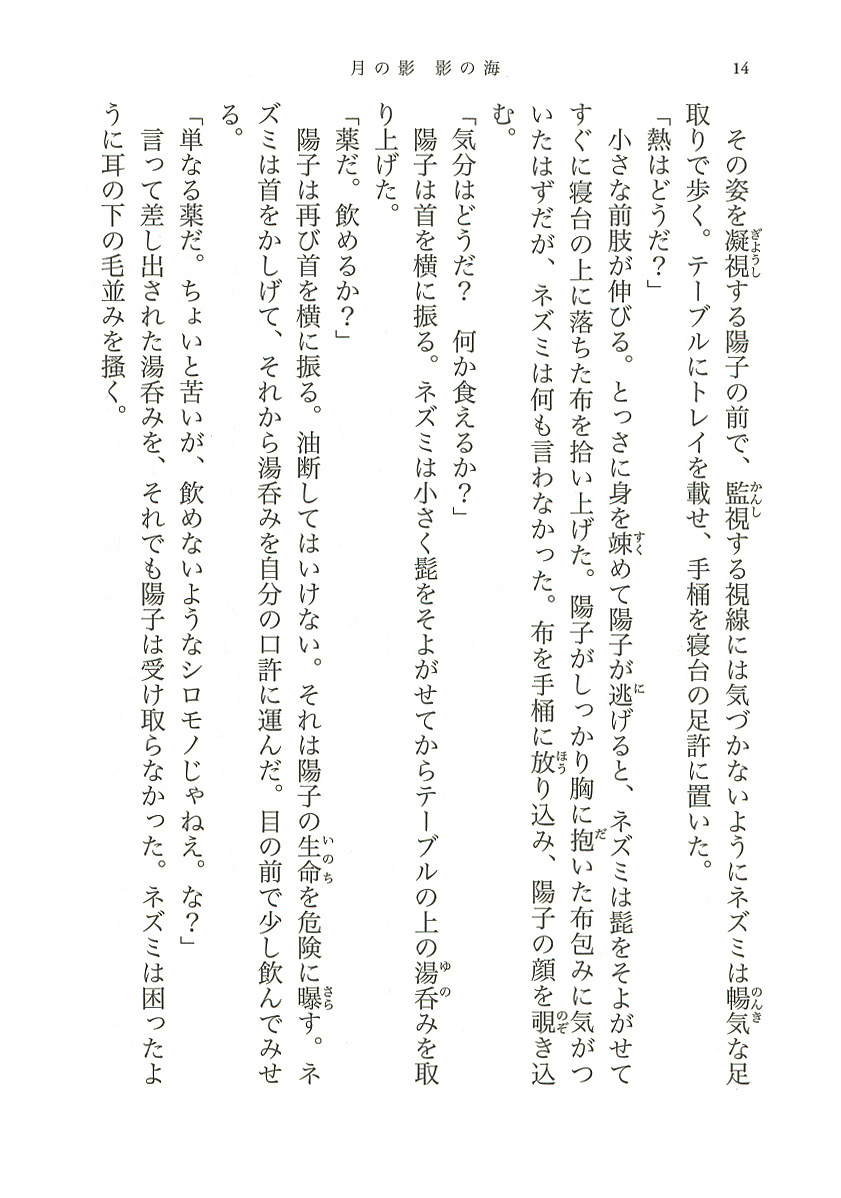 14
月の影　影の海
　その姿を凝視する陽子の前で、監視する視線には気づかないようにネズミは暢気な足
取りで歩く。テーブルにトレイを載せ、手桶を寝台の足許に置いた。
「熱はどうだ？」
　小さな前肢が伸びる。とっさに身を竦めて陽子が逃げると、ネズミは髭をそよがせて
すぐに寝台の上に落ちた布を拾い上げた。陽子がしっかり胸に抱いた布包みに気がつ
いたはずだが、ネズミは何も言わなかった。布を手桶に放り込み、陽子の顔を覗き込
む。
「気分はどうだ？　何か食えるか？」
　陽子は首を横に振る。ネズミは小さく髭をそよがせてからテーブルの上の湯呑みを取
り上げた。
「薬だ。飲めるか？」
　陽子は再び首を横に振る。油断してはいけない。それは陽子の生命を危険に曝す。ネ
ズミは首をかしげて、それから湯呑みを自分の口許に運んだ。目の前で少し飲んでみせ
る。
「単なる薬だ。ちょいと苦いが、飲めないようなシロモノじゃねえ。な？」
　言って差し出された湯呑みを、それでも陽子は受け取らなかった。ネズミは困ったよ
うに耳の下の毛並みを掻く。